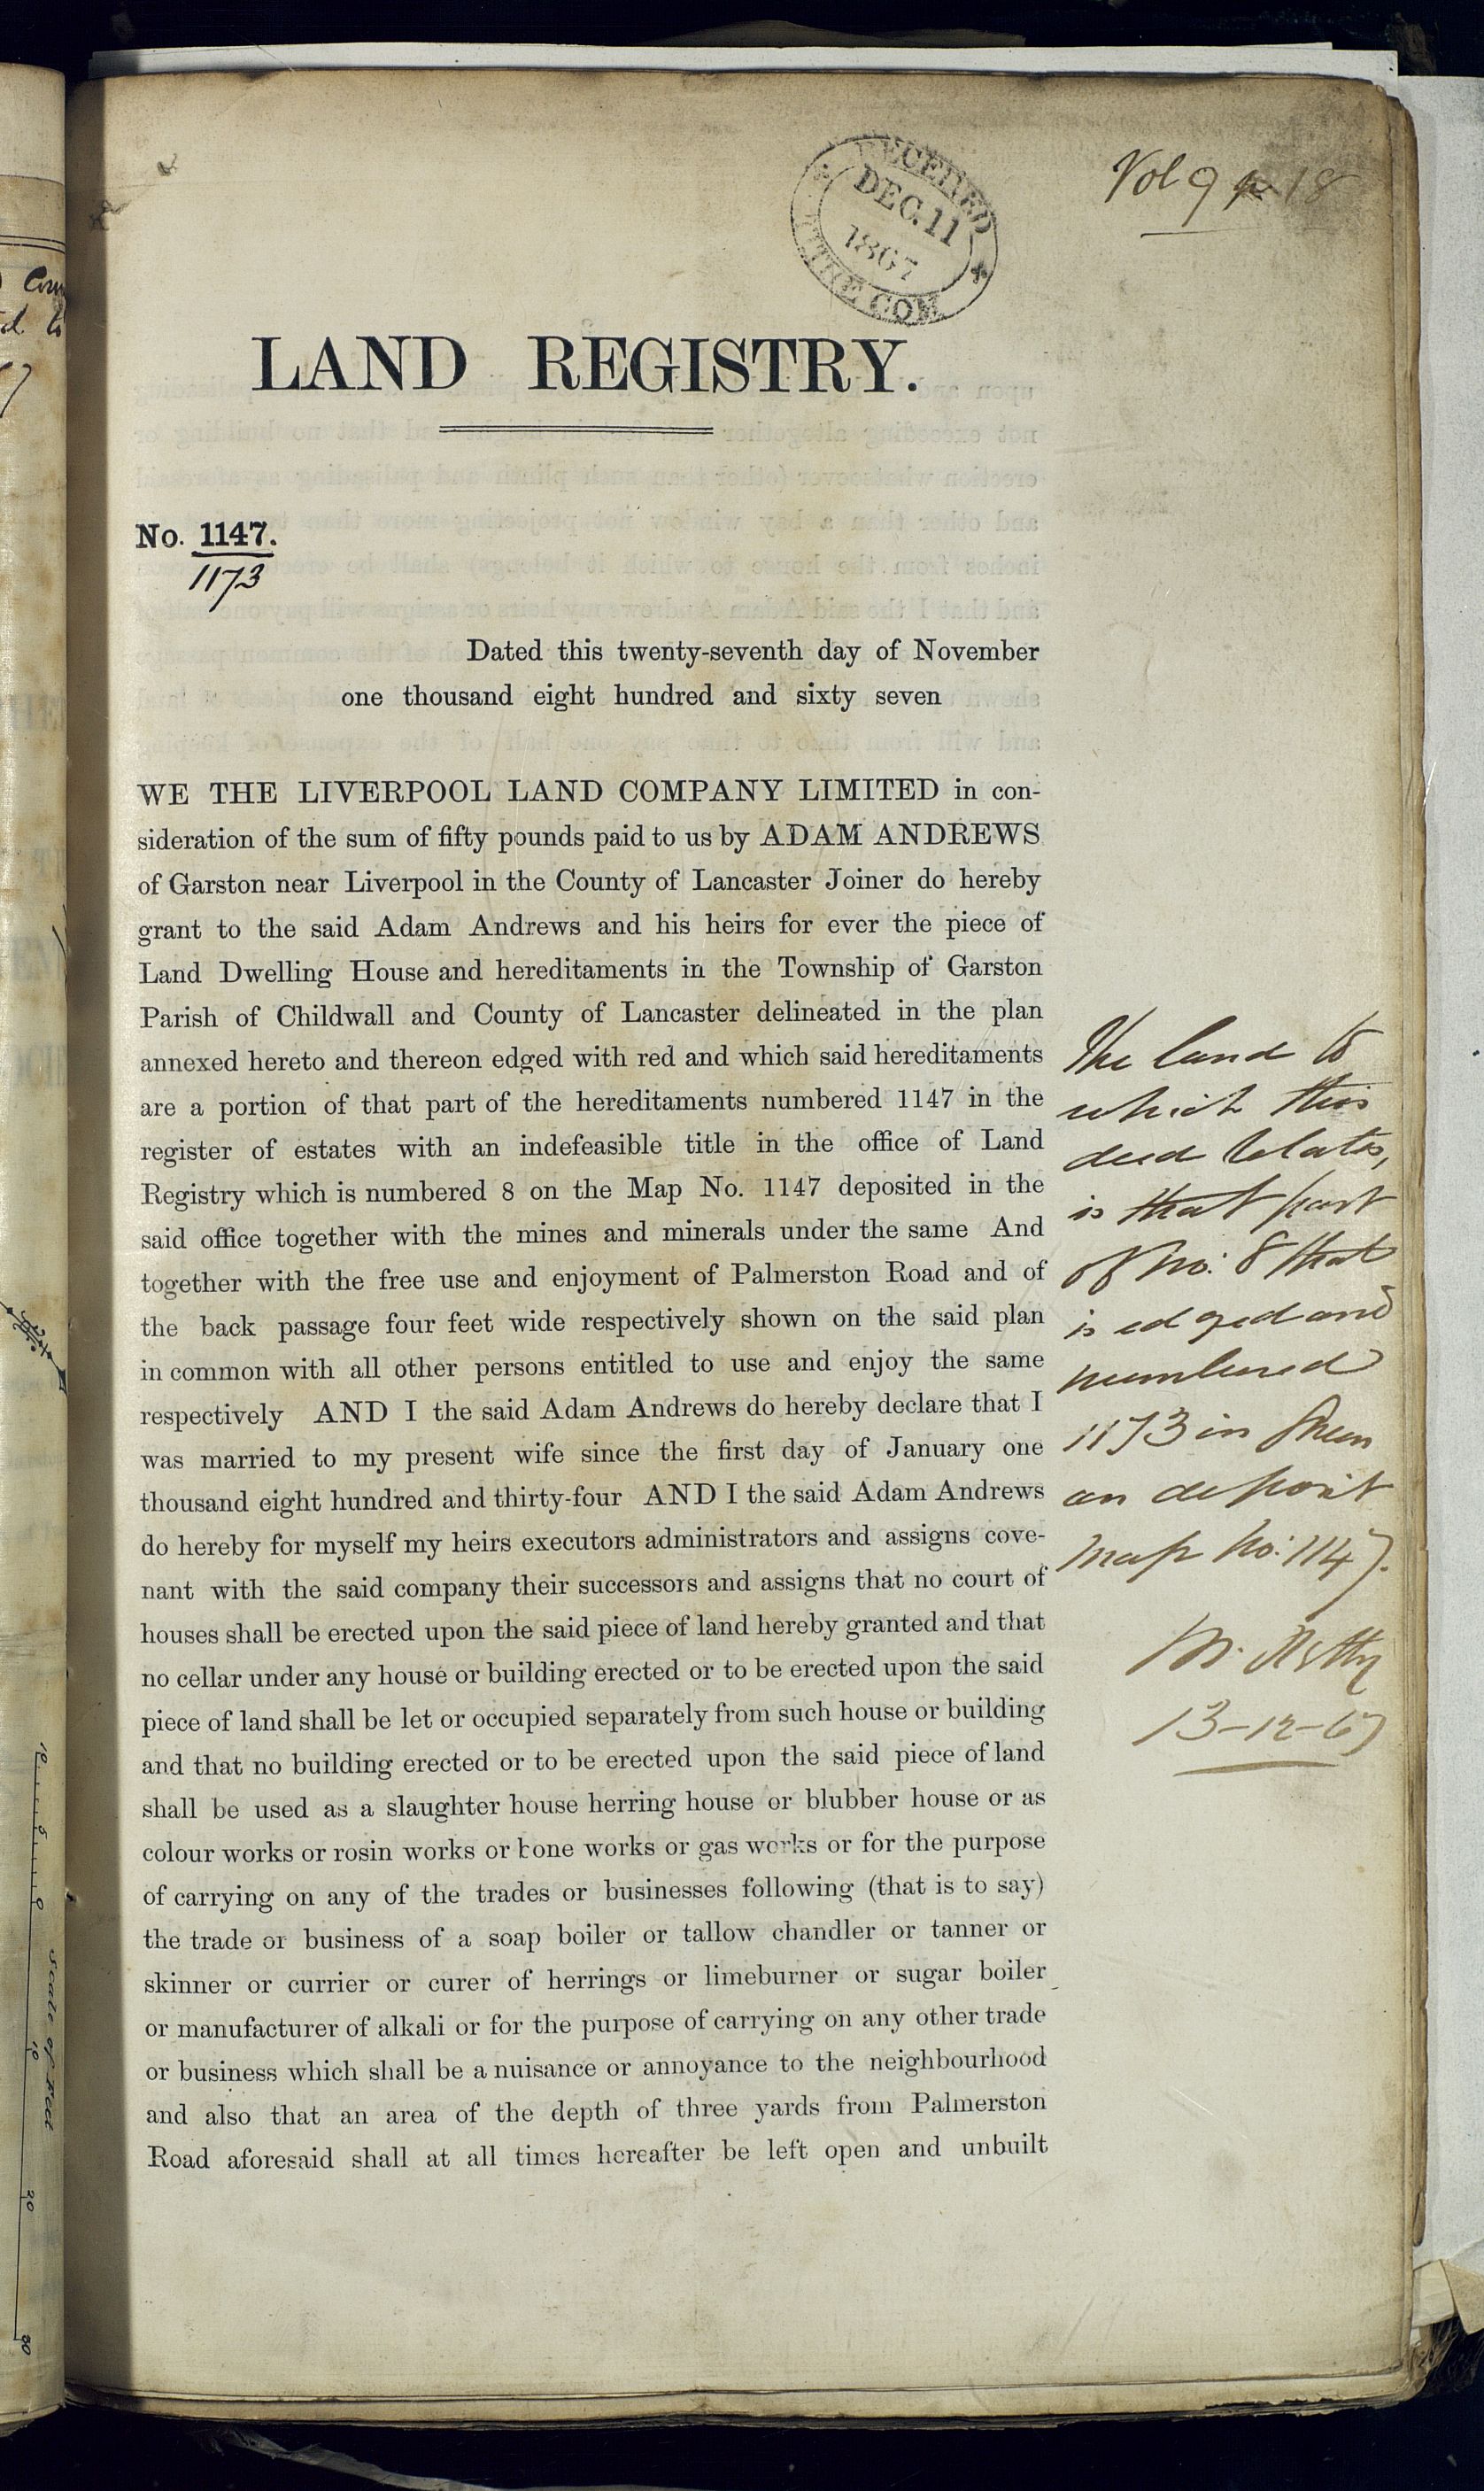 Vol 9 p 18
RECEIVED
DEC. 11
1867
TITHE COM
LAND REGISTRY.
No. 1147.
1173
Dated this twenty-seventh day of November
one thousand eight hundred and sixty seven
WE THE LIVERPOOL LAND COMPANY LIMITED in con-
sideration of the sum of fifty pounds paid to us by ADAM ANDREWS
of Garston near Liverpool in the County of Lancaster Joiner do hereby
grant to the said Adam Andrews and his heirs for ever the piece of
Land Dwelling House and hereditaments in the Township of Garston
Parish of Childwall and County of Lancaster delineated in the plan
annexed hereto and thereon edged with red and which said hereditaments
are a portion of that part of the hereditaments numbered 1147 in the
register of estates with an indefeasible title in the office of Land
Registry which is numbered 8 on the Map No. 1147 deposited in the
said office together with the mines and minerals under the same And
together with the free use and enjoyment of Palmerston Road and of
the back passage four feet wide respectively shown on the said plan
in common with all other persons entitled to use and enjoy the same
respectively AND I the said Adam Andrews do hereby declare that I
was married to my present wife since the first day of January one
thousand eight hundred and thirty-four AND I the said Adam Andrews
do hereby for myself my heirs executors administrators and assigns cove-
nant with the said company their successors and assigns that no court of
houses shall be erected upon the said piece of land hereby granted and that
no cellar under any house or building erected or to be erected upon the said
piece of land shall be let or occupied separately from such house or building
and that no building erected or to be erected upon the said piece of land
shall be used as a slaughter house herring house or blubber house or as
colour works or rosin works or bone works or gas works or for the purpose
of carrying on any of the trades or businesses following (that is to say)
the trade or business of a soap boiler or tallow chandler or tanner or
skinner or currier or curer of herrings or limeburner or sugar boiler
or manufacturer of alkali or for the purpose of carrying on any other trade
or business which shall be a nuisance or annoyance to the neighbourhood
and also that an area of the depth of three yards from Palmerston
Road aforesaid shall at all times hereafter be left open and unbuilt
The land to
which this
deed relates,
is that part
of No. 8 that
is edged and
numbered
1173 in Green
on deposit
Map No. 1147.
13-12-67
Scale of Feet
10
5
0
10
20
30